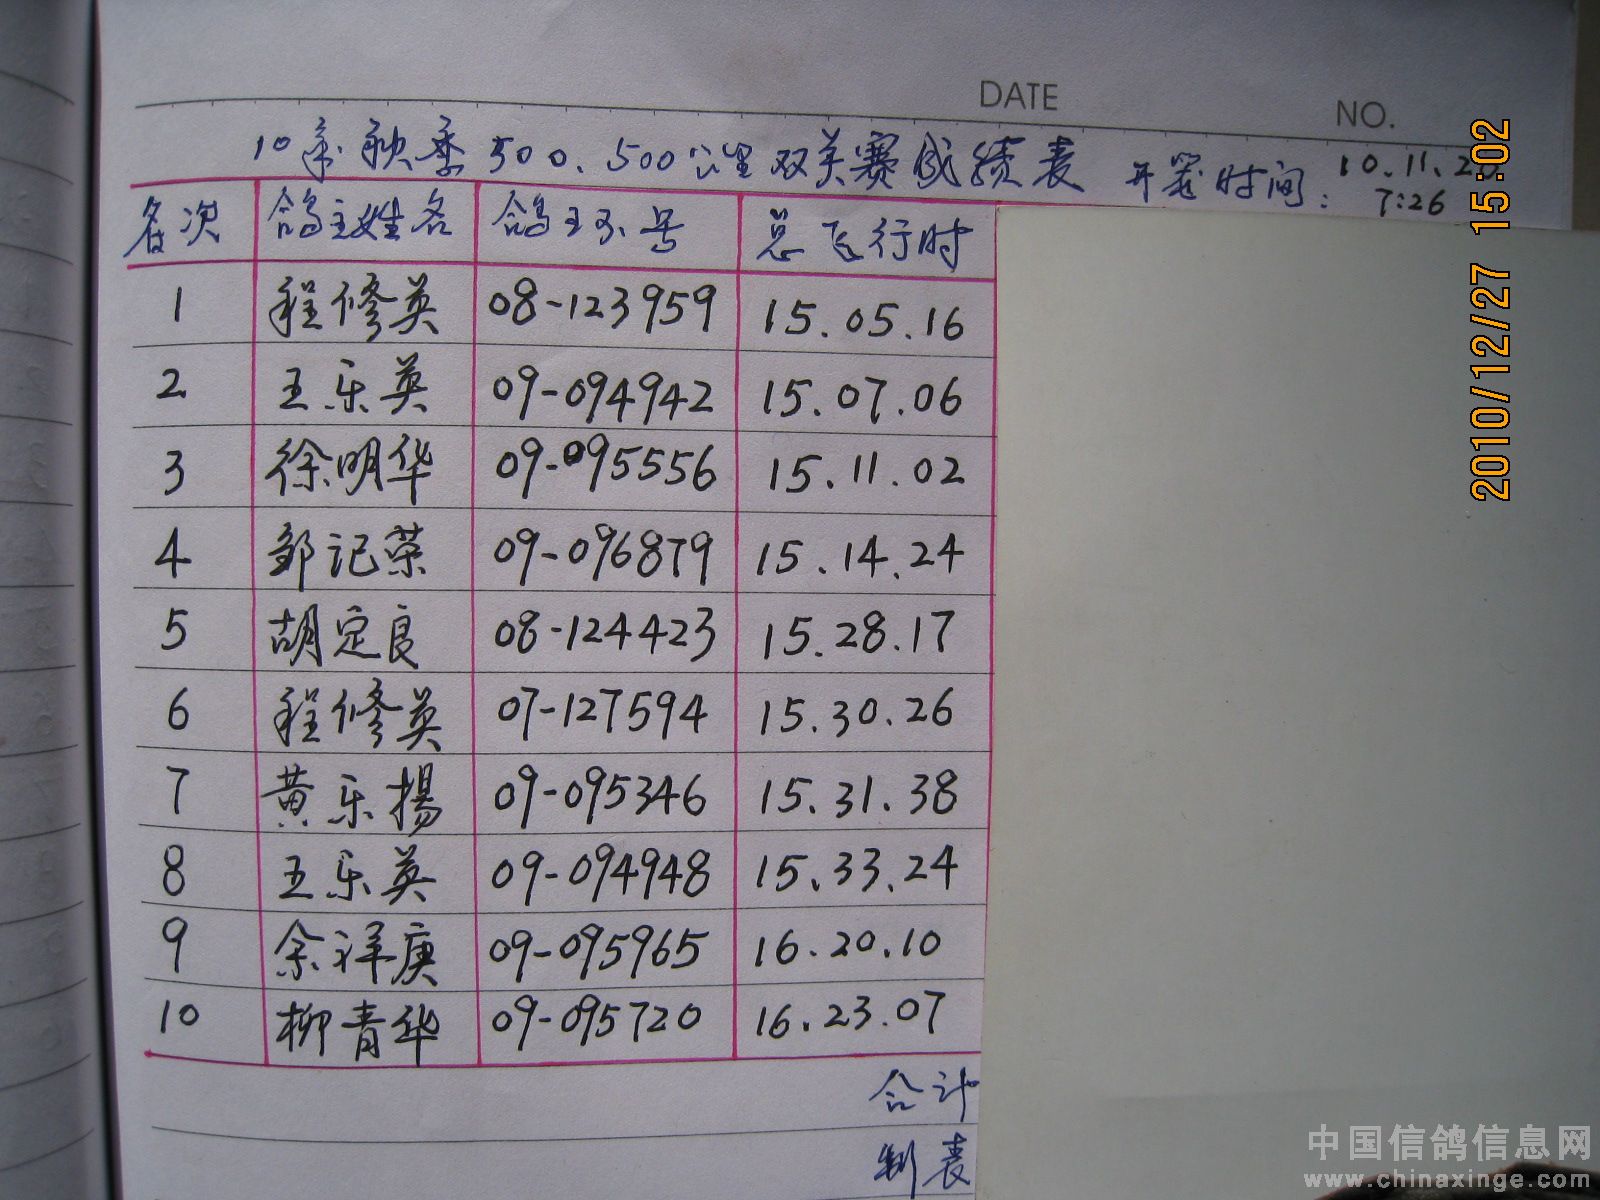 DATE
NO.
10年秋季500.500公里双关赛成绩表 开笼时间: 10.11.2
7:26
名次 鸽主姓名 鸽主环号 总飞行时
1 程修英 08-123959 15.05.16
2 王乐英 09-094942 15.07.06
3 徐明华 09-095556 15.11.02
4 邹记荣 09-096879 15.14.24
5 胡定良 08-124423 15.28.17
6 程修英 07-127594 15.30.26
7 黄乐揚 09-095346 15.31.38
8 王乐英 09-094948 15.33.24
9 余祥庚 09-095965 16.20.10
10 柳青华 09-095720 16.23.07
合计
制表
2010/12/27 15:02
中国信鸽信息网
www.chinaxinge.com